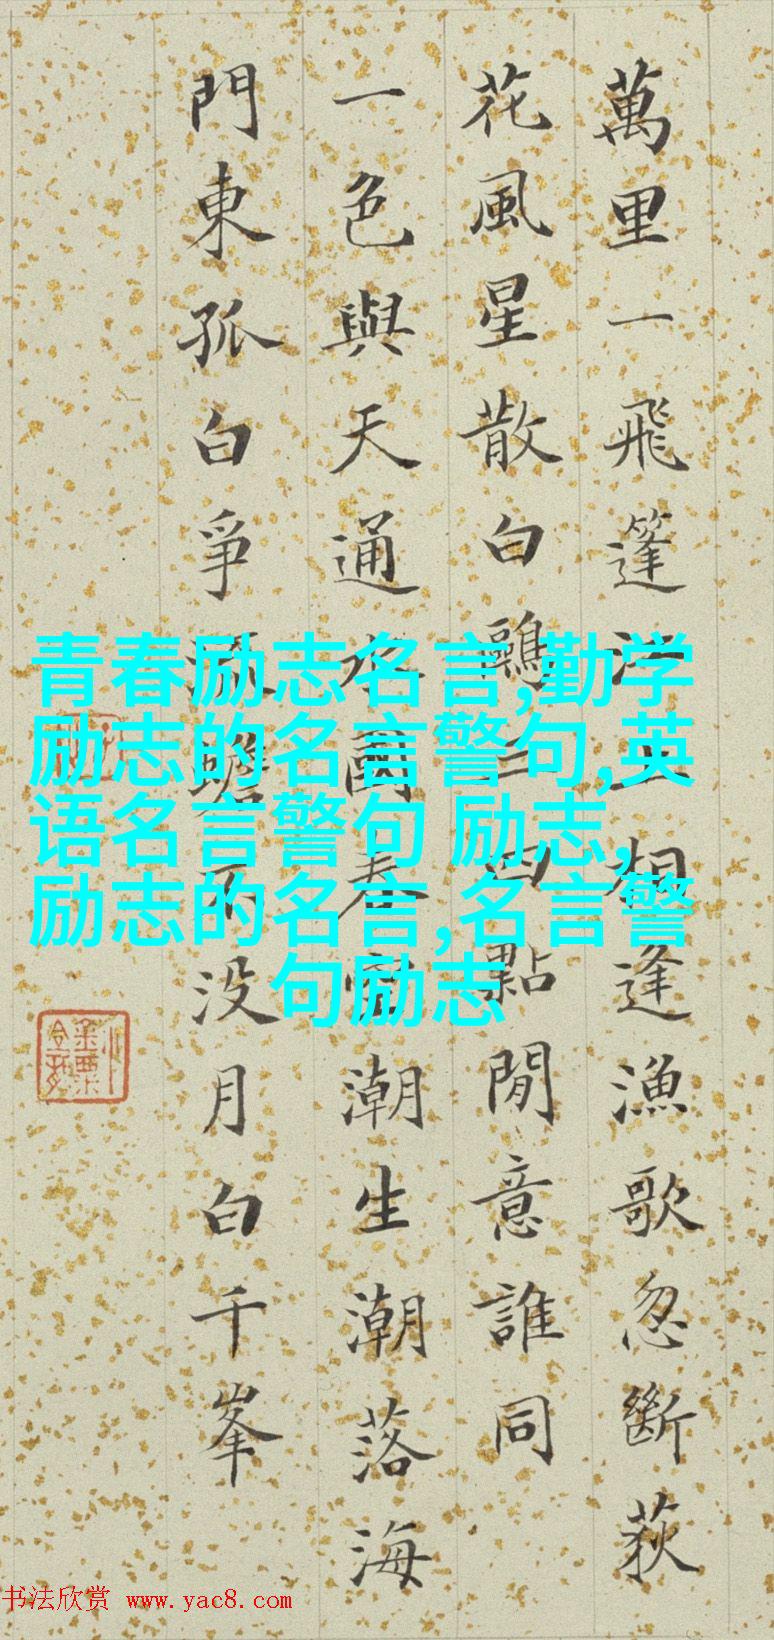 萬里一飛篷江上相逢漁歌忽斷荻
花風星散白鷗三四點閒意誰同
一色與天通水國春空潮生潮落海
門東孤白爭流蟾不沒月白千峯
青春励志名言,勤学
励志的名言警句,英
语名言警句 励志,
励志的名言,名言警
句励志
书法欣赏 www.yac8.com